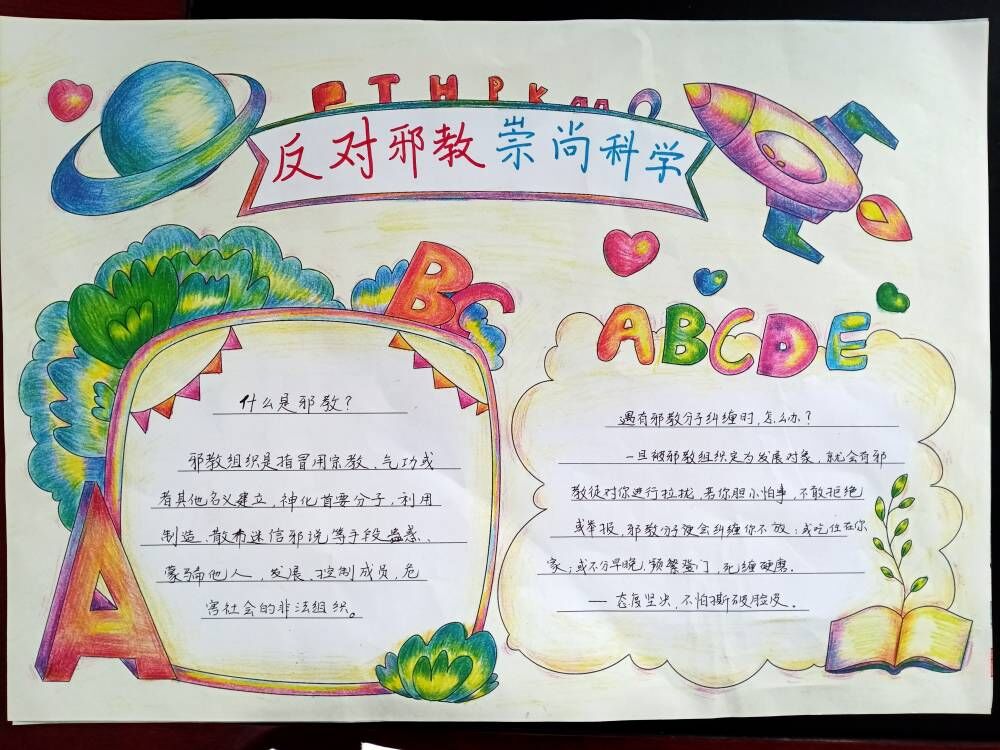 THPK
反对邪教 崇尚科学
BC
ABCDE
A
什么是邪教？
邪教组织是指冒用宗教、气功或
者其他名义建立，神化首要分子，利用
制造、散布迷信邪说等手段蛊惑、
蒙骗他人，发展、控制成员，危
害社会的非法组织。
遇有邪教分子纠缠时，怎么办？
一旦被邪教组织定为发展对象，就会有邪
教徒对你进行拉拢，若你胆小怕事，不敢拒绝
或举报，邪教分子便会纠缠你不放；或吃住在你
家；或不分早晚，频繁登门，死缠硬磨.
— 态度坚决，不怕撕破脸皮.